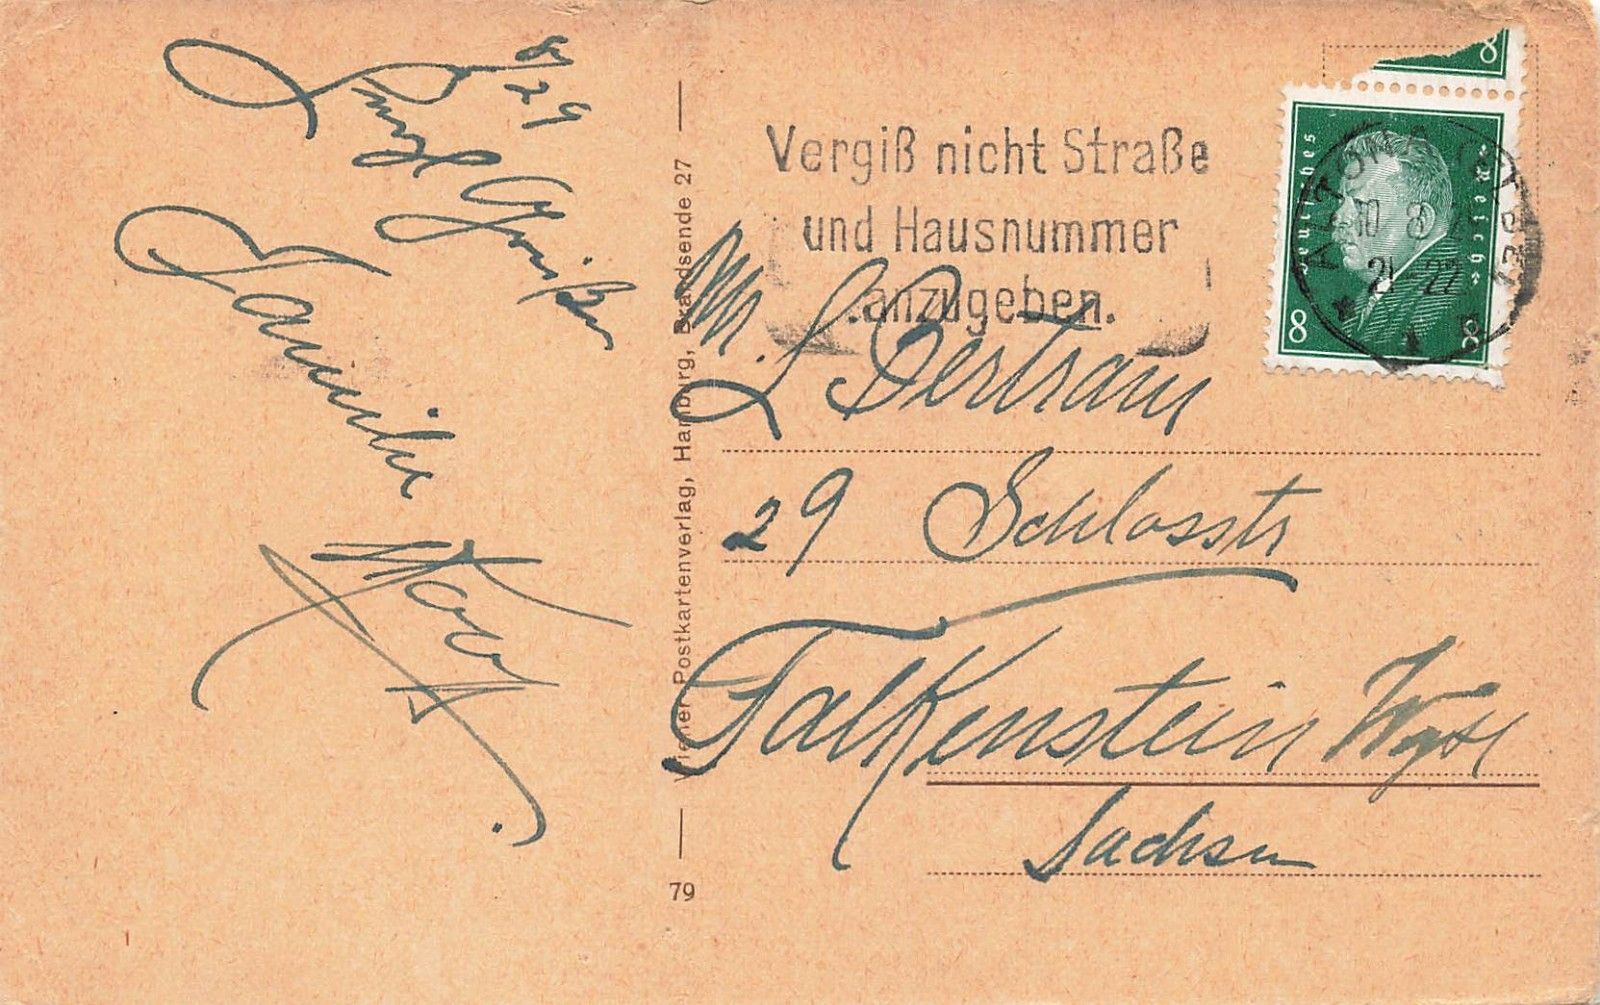 8/29
Grüße
Familie
Vergiß nicht Straße
und Hausnummer
anzugeben.
8
Deutsches Reich
8 8
ALTONA
21-22
Wiener Postkartenverlag, Hamburg, Brandsende 27
79
L Bertram
29 Schlosstr
Falkenstein
Sachsen